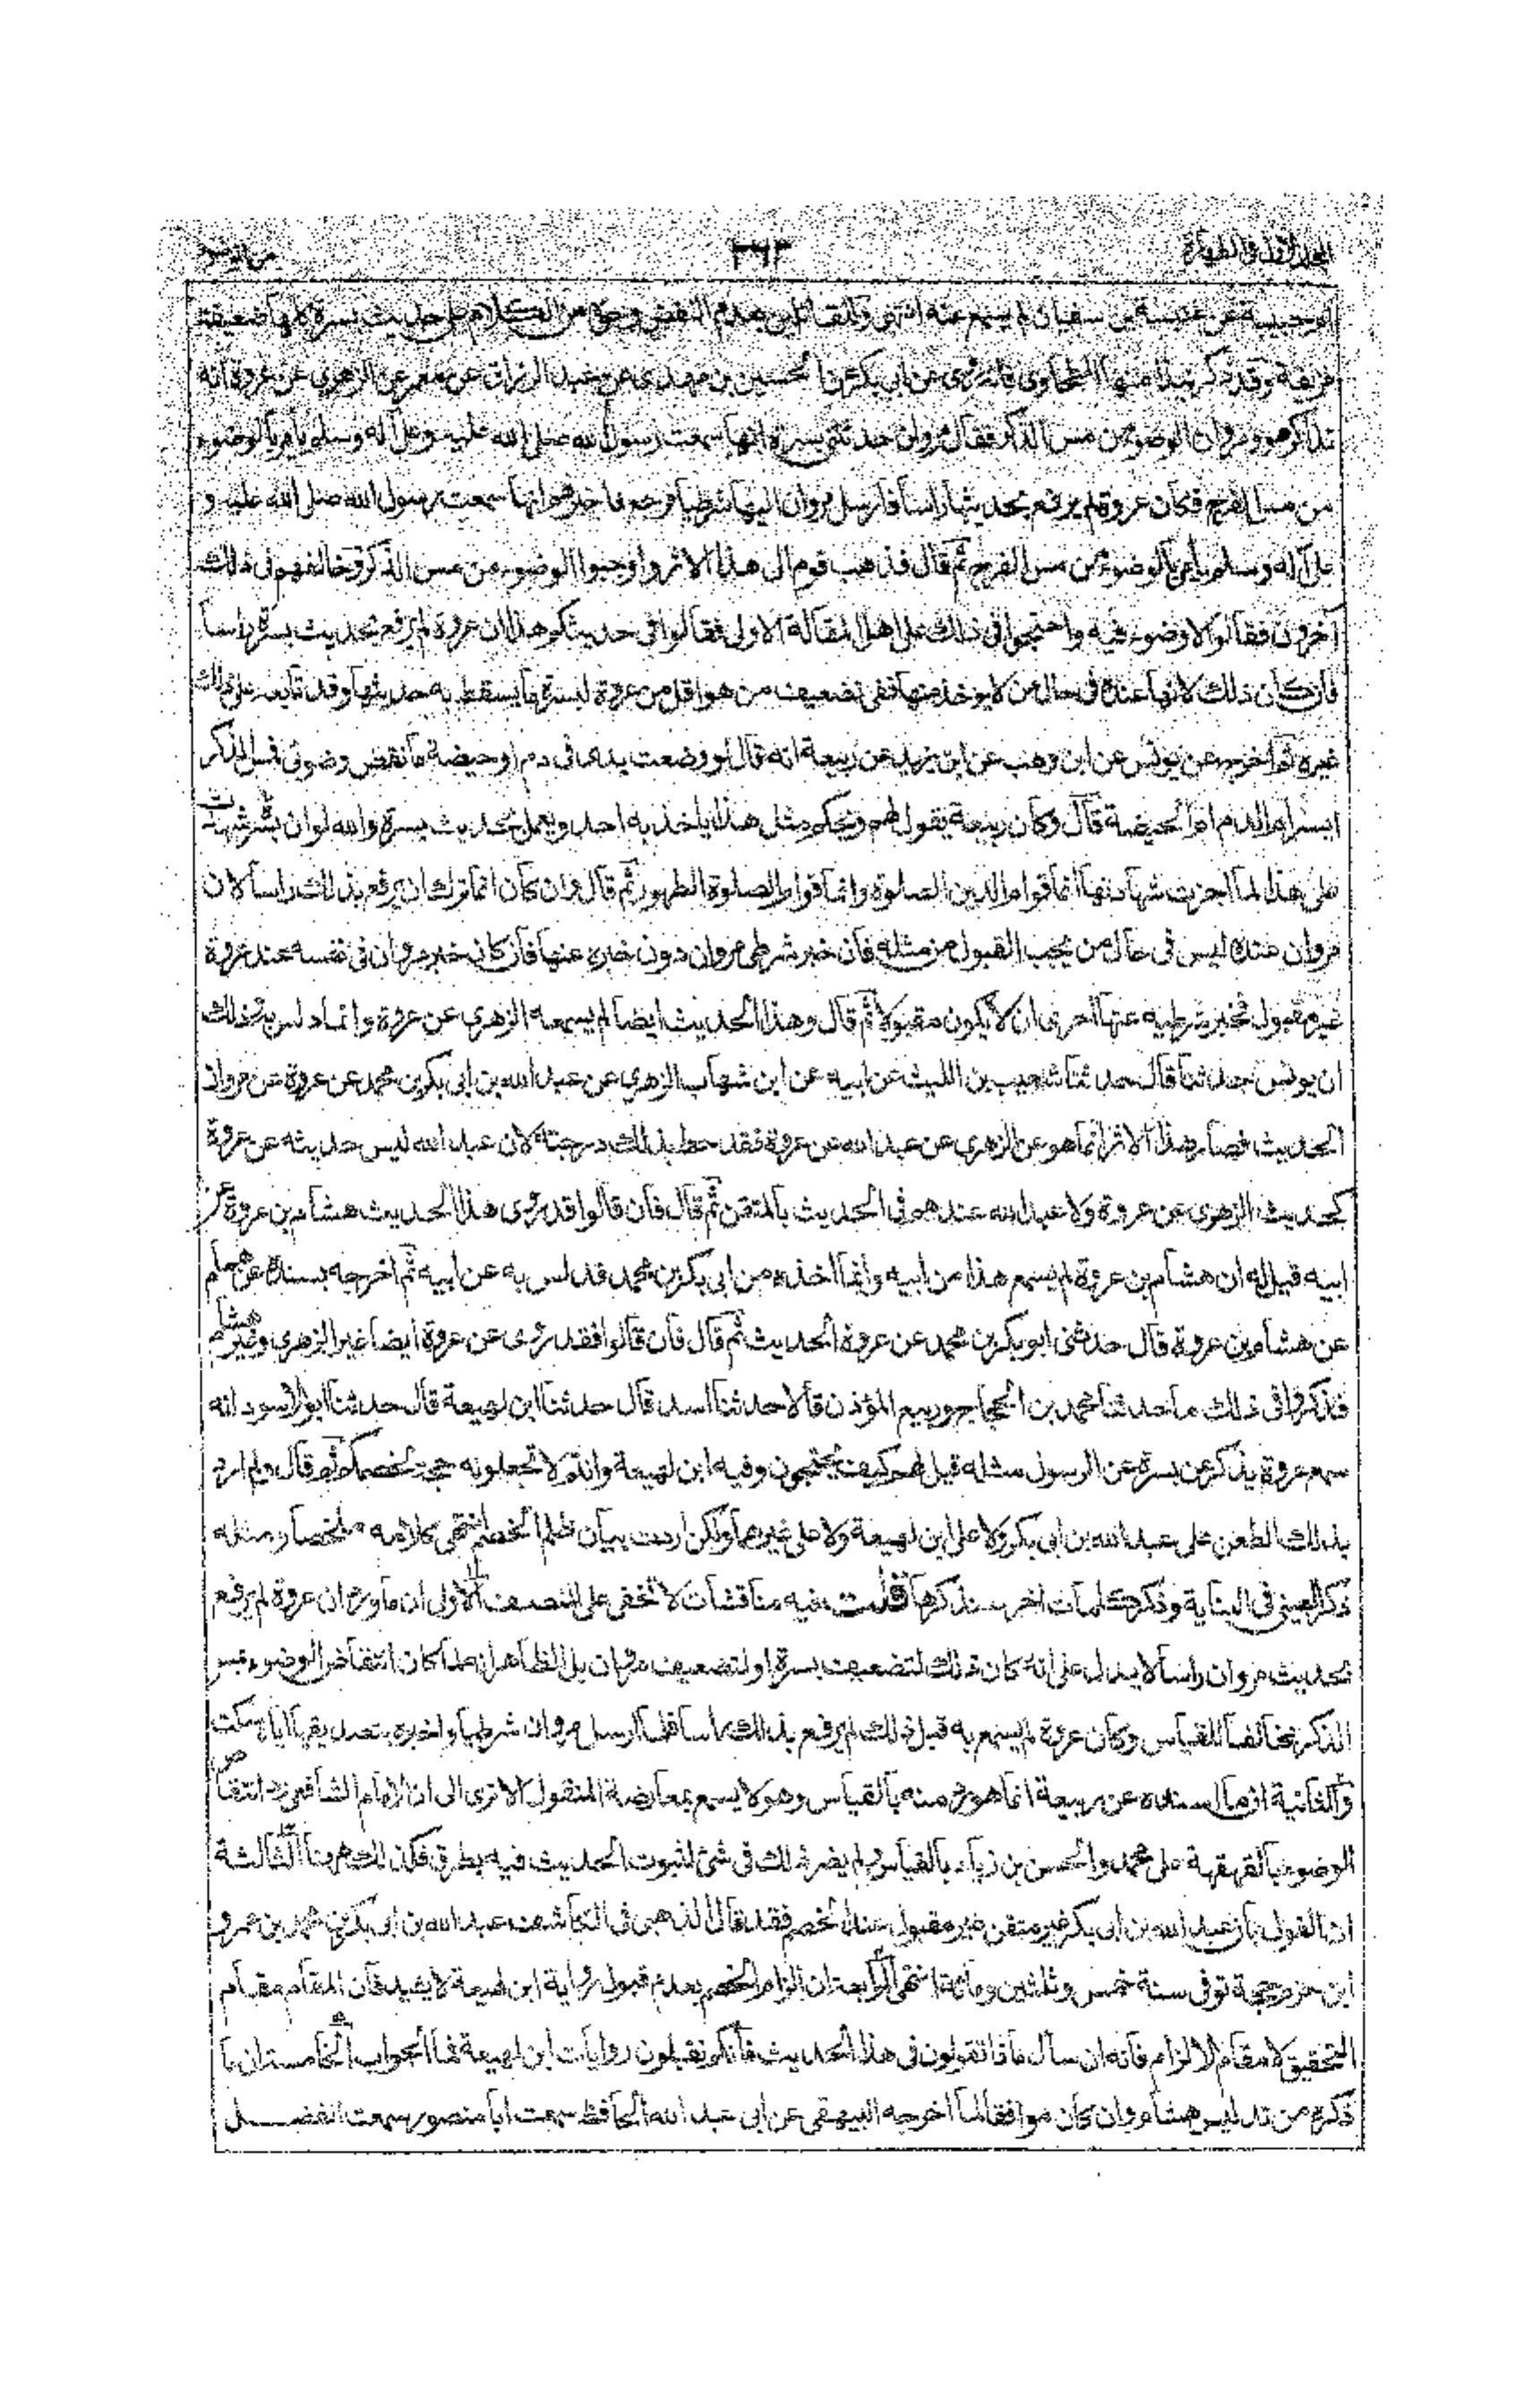 المجلد الاول فى الطهارة ٢٦٣
ام حبيبة عن عنبسة بن سفيان لم يسمع منه انتهى وللقائلين بعدم النقض وجوه من الكلام على حديث بسرة كلها ضعيفة
وقد ذكر نبذا منها الطحاوى فانه روى عن ابى بكرة نا الحسين بن مهدى عن عبد الرزاق عن معمر عن الزهرى عن عروة انه
تذاكر هو ومروان الوضوء من مس الذكر فقال مروان حدثتنى بسرة انها سمعت رسول الله صلى الله عليه وعلى آله وسلم يأمر بالوضوء
من مس الفرج فكان عروة لم يرفع بحديثها رأسا فأرسل مروان اليها شرطيا فرجع فاخبرهم انها سمعت رسول الله صلى الله عليه و
على آله وسلم يأمر بالوضوء من مس الفرج ثم قال فذهب قوم الى هذا الاثر واوجبوا الوضوء من مس الذكر وخالفهم فى ذلك
آخرون فقالوا لا وضوء فيه واحتجوا فى ذلك على اهل المقالة الاولى فقالوا فى حديثكم هذا ان عروة لم يرفع بحديث بسرة رأسا
فان كان ذلك لانها عنده فى حال من لا يوخذ منها ففى تضعيف من هو اقل من عروة لبسرة ما يسقط به حديثها وقد تابعه على ذلك
غيره ثم اخرج عن يونس عن ابن وهب عن ابن يزيد عن ربيعة انه قال لو وضعت يدى فى دم او حيضة ما نقض وضوئى فمس الذكر
ايسر ام الدم ام الحيضة قال وكان ربيعة يقول لهم ويحكم مثل هذا ياخذ به احد ويعمل بحديث بسرة والله لو ان بسرة شهدت
على هذا لما اجزت شهادتها انما قوام الدين الصلوة وانما قوام الصلوة الطهور ثم قال وان كان انما ترك ان يرفع بذلك رأسا لان
مروان عنده ليس فى حال من يجب القبول من مثله فان خبر شرطى مروان دون خبره عنها فان كان خبر مروان فى نفسه عند عروة
غير مقبول فخبر شرطيه عنها احرى ان لا يكون مقبولا ثم قال وهذا الحديث ايضا لم يسمعه الزهرى عن عروة وانما دلس به وذلك
ان يونس حدثنا قال حدثنا شعيب بن الليث عن ابيه عن ابن شهاب الزهرى عن عبد الله بن ابى بكر بن محمد عن عروة عن مروان
الحديث فصار هذا الاثر انما هو عن الزهرى عن عبد الله عن عروة فقد حط بذلك درجته لان عبد الله ليس حديثه عن عروة
كحديث الزهرى عن عروة ولا عبد الله عندهم فى الحديث بالمتقن ثم قال فان قالوا قد روى هذا الحديث هشام بن عروة عن
ابيه قيل له ان هشام بن عروة لم يسمع هذا من ابيه وانما اخذه من ابى بكر بن محمد فدلس به عن ابيه ثم اخرجه بسنده عن همام
عن هشام بن عروة قال حدثنى ابو بكر بن محمد عن عروة الحديث ثم قال فان قالوا فقد روى عن عروة ايضا غير الزهرى وغير هشام
فذكروا فى ذلك ما حدثنا محمد بن الحجاج وربيع المؤذن قالا حدثنا اسد قال حدثنا ابن لهيعة قال حدثنا ابو الاسود انه
سمع عروة يذكر عن بسرة عن الرسول مثله قيل لهم كيف تحتجون وفيه ابن لهيعة وانتم لا تجعلونه حجة لخصمكم ثم قال ولم ارد
بذلك الطعن على عبد الله بن ابى بكر ولا على ابن لهيعة ولا على غيرهما ولكن اردت بيان ظلم الخصم انتهى كلامه ملخصا ومثله
ذكر العينى فى البناية وذكر كلمات اخر سنذكرها قلت فيه مناقشات لا تخفى على المنصف الاولى ان ما ورد ان عروة لم يرفع
بحديث مروان رأسا لا يدل على انه كان ذلك لتضعيف بسرة او لتضعيف مروان بل الظاهر انه لما كان انتقاض الوضوء بمس
الذكر مخالفا للقياس وكان عروة لم يسمع به قبل ذلك لم يرفع بذلك رأسا فلما ارسل مروان شرطيا واخبره بتصديقها اياه سكت
والثانية ان ما اسنده عن ربيعة انما هو جرح منه بالقياس وهو لا يسمع بمعارضة المنقول الا ترى الى ان الامام الشافعى رد انتقاض
الوضوء بالقهقهة على محمد والحسن بن زياد بالقياس ولم يضر ذلك فى شئ لثبوت الحديث فيه بطرق فكذلك ههنا الثالثة
ان القول بان عبد الله بن ابى بكر غير متقن غير مقبول عند الخصم فقد قال الذهبى فى الكاشف عبد الله بن ابى بكر بن محمد بن عمرو
ابن حزم حجة توفى سنة خمس وثلثين ومائة انتهى الرابعة ان الزام الخصم بعدم قبول رواية ابن لهيعة لا يفيد فان المقام مقام
التحقيق لا مقام الالزام فانه ان سأل ماذا تقولون فى هذا الحديث فانكم تقبلون روايات ابن لهيعة فما الجواب الخامسة ان ما
ذكره من تدليس هشام وان كان موافقا لما اخرجه البيهقى عن ابى عبد الله الحافظ سمعت ابا منصور سمعت الفضل